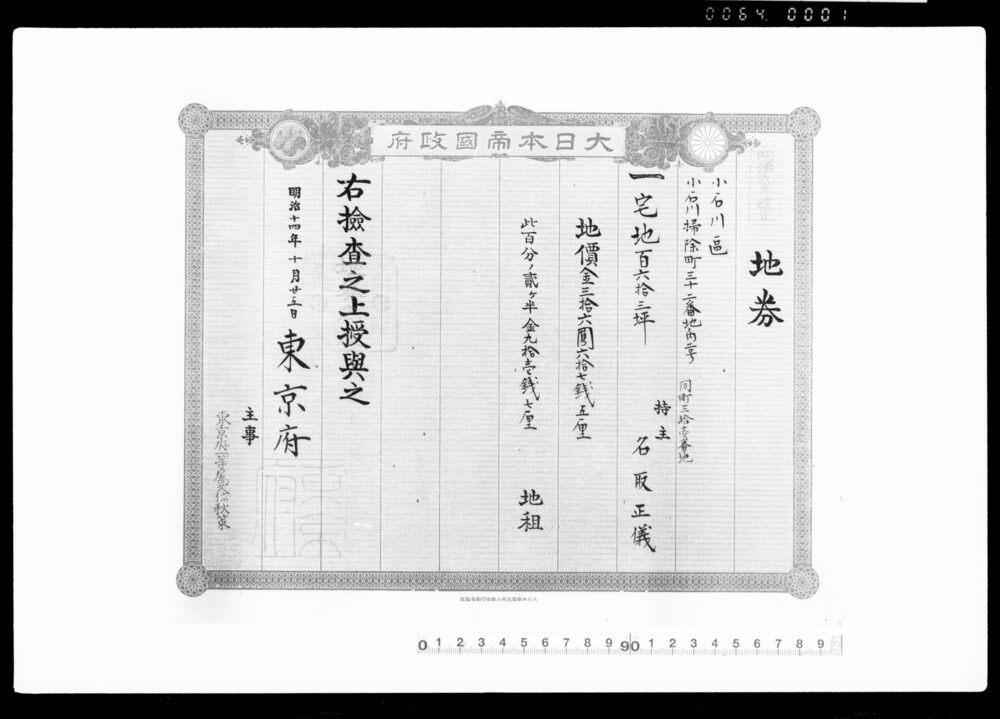 0064. 0001
大日本帝國政府
地券
小石川區
小石川掃除町三十二番地内二号
同町三拾壱番地
一宅地百六拾三坪
持主 名取正儀
地價金三拾六圓六拾七銭五厘
此百分ノ貳ヶ半金九拾壱銭七厘
地租
右撿査之上授與之
明治十四年十月廿五日
東京府
主事
東京府一等属
0 1 2 3 4 5 6 7 8 9 90 1 2 3 4 5 6 7 8 9